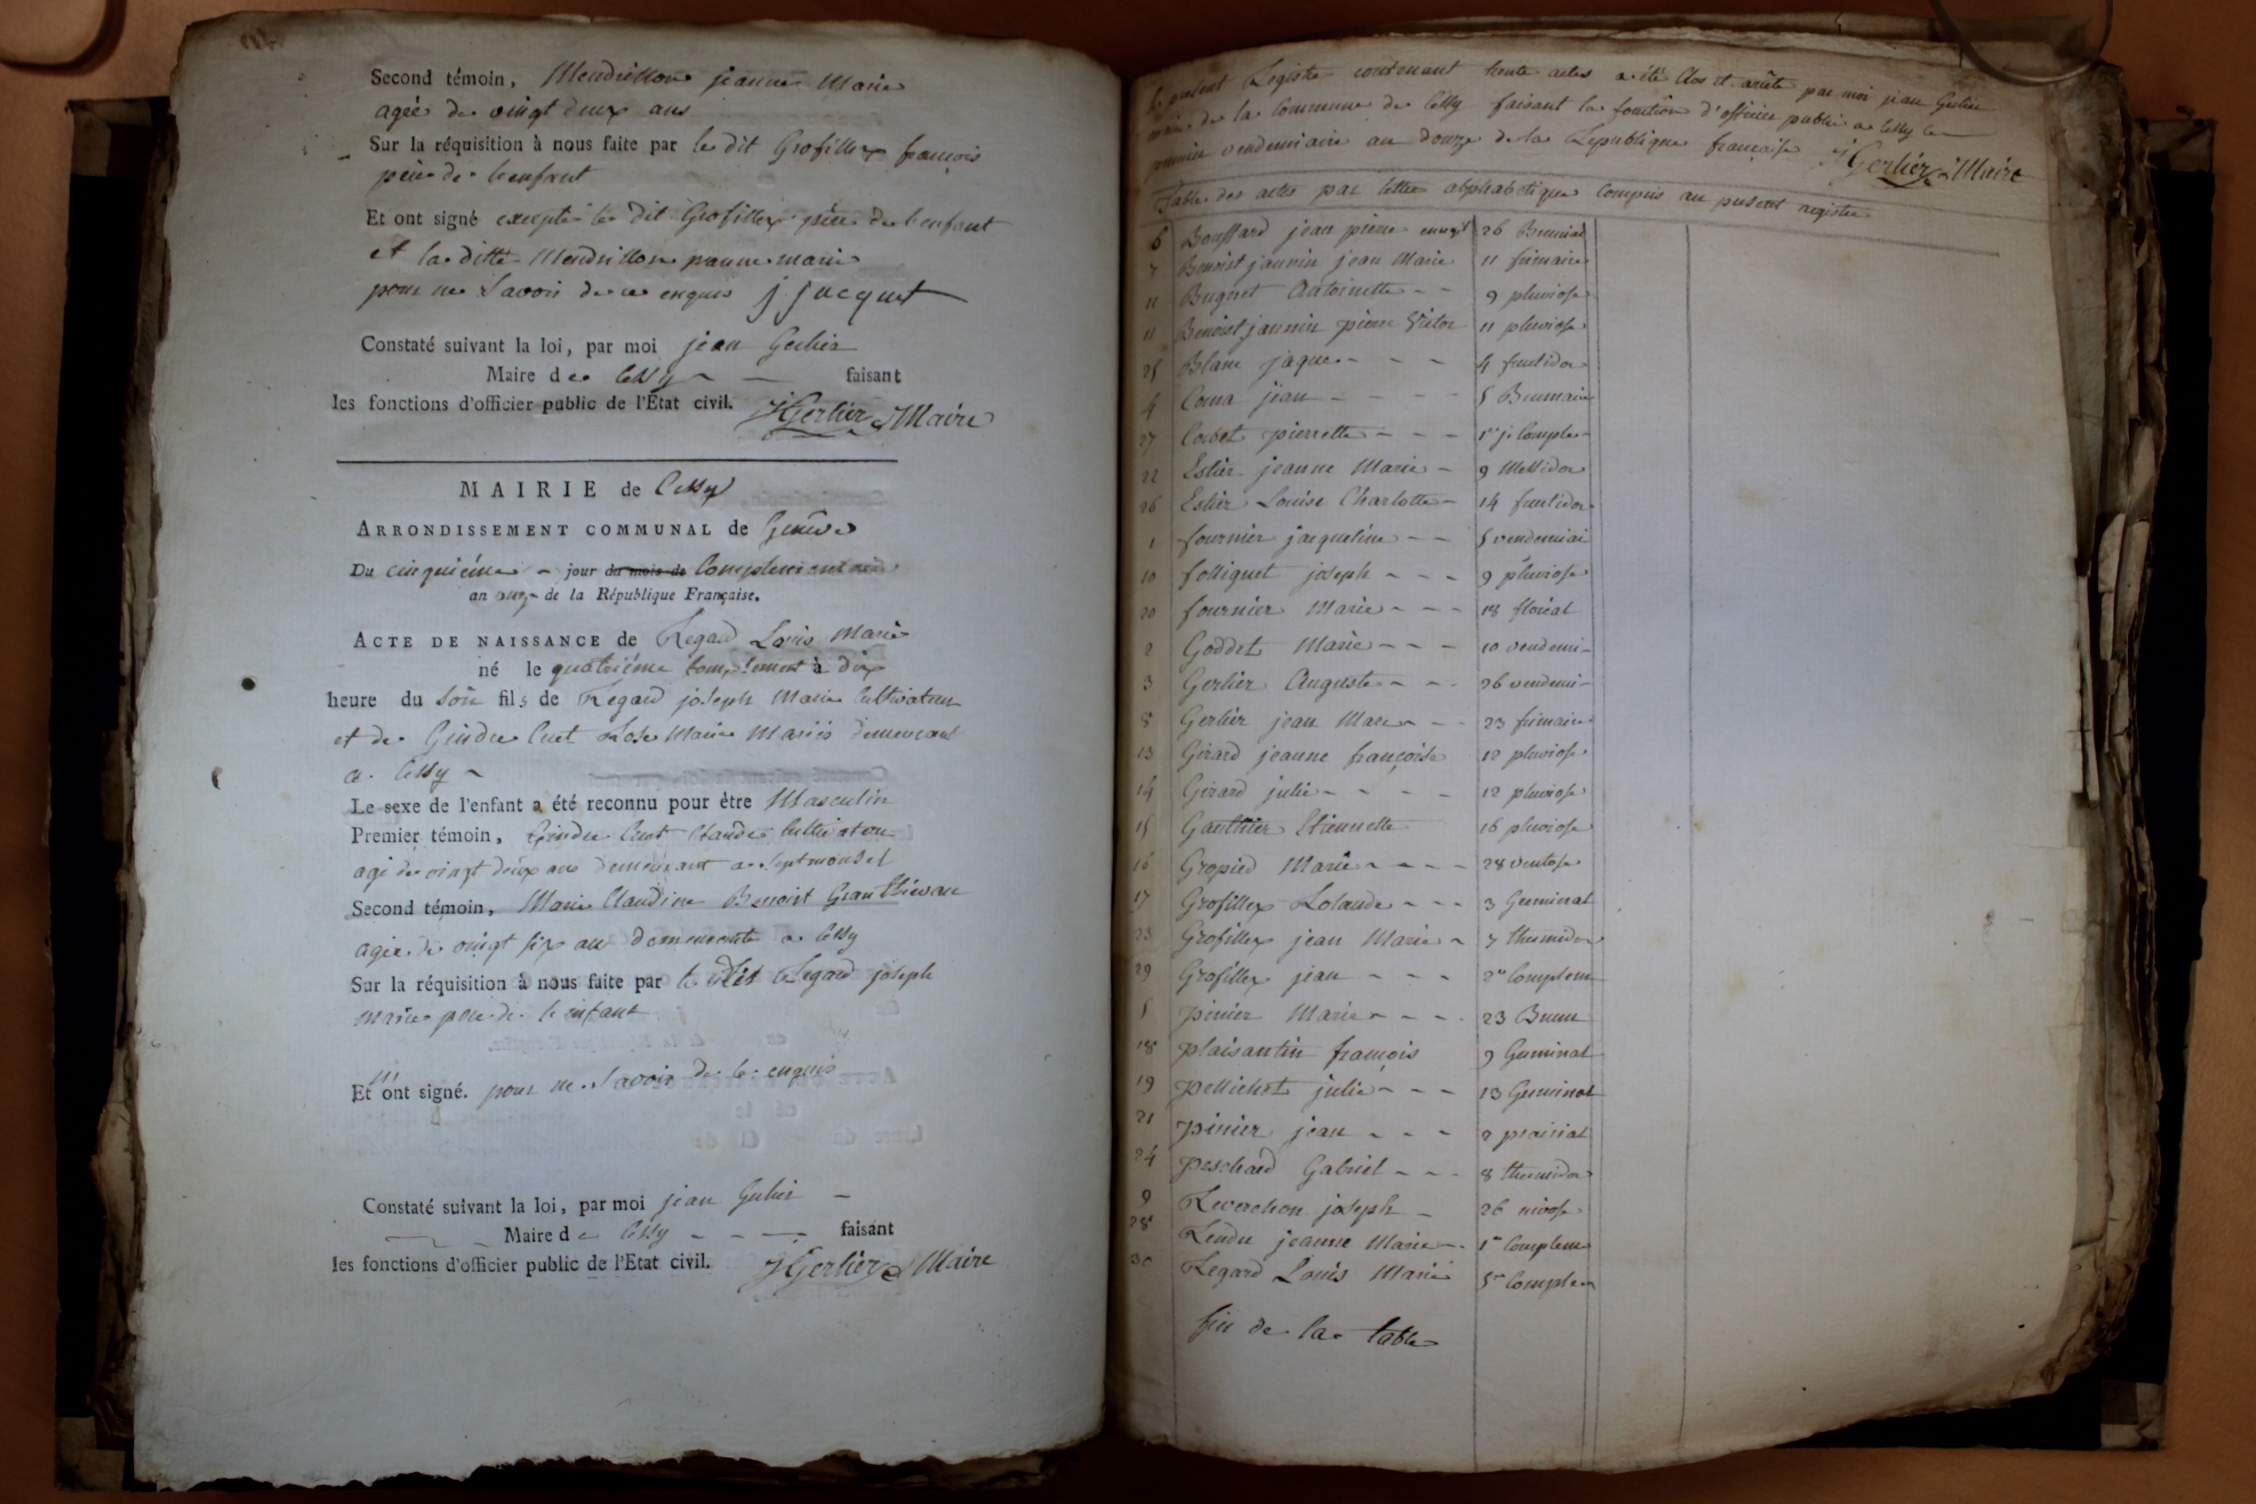 Second témoin, Mendrillon jeanne Marie
agée de vingt deux ans
Sur la réquisition à nous faite par le dit Grofillex françois
père de lenfant
Et ont signé excepté le dit Grofillex père de lenfant
et la ditte Mendrillon jeanne marie
pour ne Savoir de ce enquis j. jacquet
Constaté suivant la loi, par moi jean Gerlier
Maire de Cessy faisant
les fonctions d'officier public de l'État civil. J Gerlier Maire
MAIRIE de Cessy
ARRONDISSEMENT COMMUNAL de Genêve
Du cinquiéme jour du mois de Complementaire
an onze de la République Française.
ACTE DE NAISSANCE de Regard Louis Marie
né le quatriéme complement à dix
heure du Soir fils de Regard joseph Marie Cultivateur
et de Gindre Cuet Rose Marie Mariés demeurant
a Cessy
Le sexe de l'enfant a été reconnu pour être Masculin
Premier témoin, Gindre Cuet Claude Cultivateur
agé de vingt deux ans demeurant a Septmonsel
Second témoin, Marie Claudine Benoist
agée de vingt six ans demeurante a Cessy
Sur la réquisition à nous faite par le dit Regard joseph
Marie père de lenfant
Et n'ont signé. pour ne Savoir de ce enquis
Constaté suivant la loi, par moi jean Gerlier
Maire de Cessy faisant
les fonctions d'officier public de l'Etat civil. J Gerlier Maire
le présent Registre contenant trente actes a été Clos et arrêté par moi jean Gerlier
maire de la Commune de Cessy faisant la fonction d'officier public a Cessy le
premier vendemiaire an douze de la Republique française J Gerlier Maire
Table des actes par lettre alphabetique Compris au présent registre
6 Bouffard jean pierre 26 Brumai
7 Benoist jannin jean Marie 11 frimaire
11 Bugnet Antoinette 9 pluviose
11 Benoist jannin pierre Victor 11 pluviose
25 Blanc jaque 4 fructidor
4 Coma jean 5 Brumaire
27 Corbet pierrette 1er j. Comple
22 Estier jeanne Marie 9 Messidor
26 Estier Louise Charlotte 14 fructidor
1 fournier jacqueline 5 vendemiai
10 folliquet joseph 9 pluviose
20 fournier Marie 18 floréal
2 Goddet Marie 10 vendemi
3 Gerlier Auguste 26 vendemi
8 Gerlier jean Marc 23 frimaire
13 Girard jeanne françoise 12 pluviose
14 Girard julie 12 pluviose
15 Gauthier Etiennette 16 pluviose
16 Gropied Marie 28 ventose
17 Grofillex Rolande 3 Germinal
23 Grofillex jean Marie 7 thermidor
29 Grofillex jean 2me Complem
5 pinier Marie 23 Brum
18 plaisantin françois 9 Germinal
19 pellichet julie 13 Germinal
21 pinier jean 2 prairial
24 peschard Gabriel 8 thermidor
9 Reverchon joseph 26 nivose
28 Rendu jeanne Marie 1er Complem
30 Regard Louis Marie 5me Complem
fin de la table